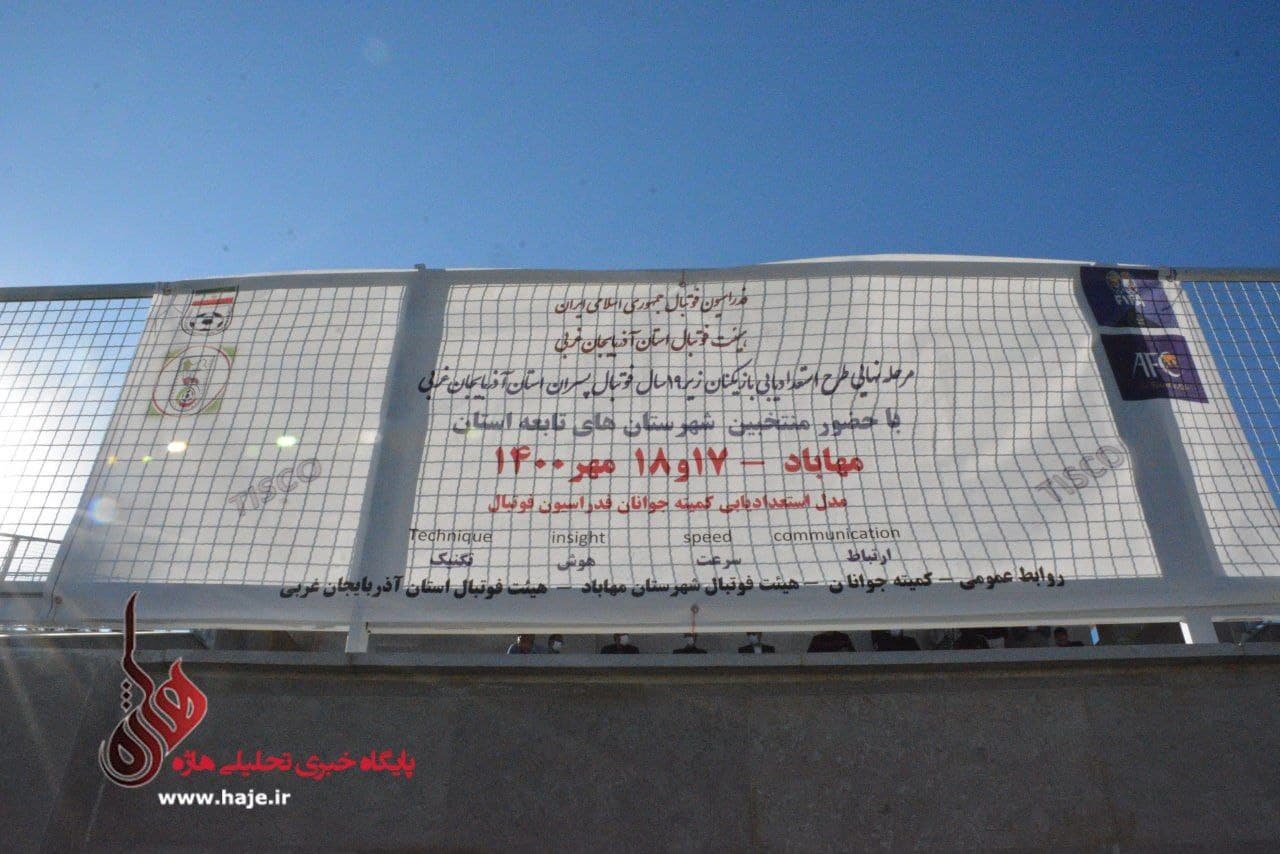 فدراسیون فوتبال جمهوری اسلامی ایران
هیئت فوتبال استان آذربایجان غربی
مرحله نهایی طرح استعدادیابی بازیکنان زیر ۱۹ سال فوتبال پسران استان آذربایجان غربی
با حضور منتخبین شهرستان های تابعه استان
مهاباد - ۱۷و۱۸ مهر ۱۴۰۰
مدل استعدادیابی کمیته جوانان فدراسیون فوتبال
Technique insight speed communication
ارتباط سرعت هوش تکنیک
روابط عمومی - کمیته جوانان - هیئت فوتبال شهرستان مهاباد - هیئت فوتبال استان آذربایجان غربی
FIFA
AFC
TISCO
TISCO
هاژه
پایگاه خبری تحلیلی هاژه
www.haje.ir